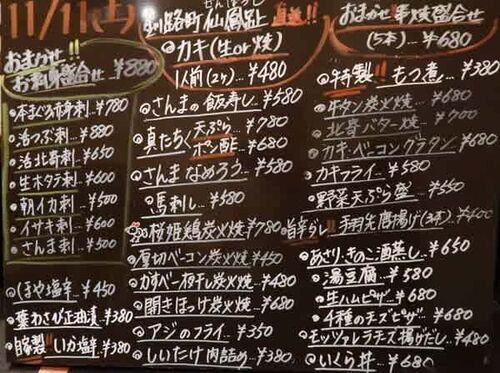 11/11(土)
おまかせ!!
お刺身盛合せ ¥880
•本まぐろ赤身刺...¥780
•活つぶ刺...¥880
•活北寄刺...¥650
•生ホタテ刺...¥600
•朝イカ刺...¥500
•イサキ刺...¥600
•さんま刺...¥500
•ほや塩辛...¥450
•葉わさび正油漬 ¥380
•自家製!!いか塩辛 ¥380
せんぽうし
釧路町 仙鳳趾 直送!!
•カキ(生or焼)
1人前(2ヶ)...¥480
•さんまの飯寿し...¥580
•真たちく天ぷら...¥780
ポン酢...¥680
•さんまなめろう...¥580
•馬刺し...¥580
•桜姫鶏炭火焼...¥780
•厚切ベーコン炭火焼...¥450
•かすべ一夜干し炭火焼...¥480
•開きほっけ炭火焼...¥680
•アジのフライ...¥350
•しいたけ肉詰め...¥380
おまかせ!!串焼盛合せ
(5本)...¥680
•特製!!もつ煮...¥380
•牛タン炭火焼...¥680
•北寄バター焼...¥700
•カキ・ベーコングラタン...¥680
•カキフライ...¥580
•野菜天ぷら盛...¥550
•旨辛ダレ!!手羽先唐揚げ(3本)...¥400
•あさり、きのこ酒蒸し...¥650
•湯豆腐...¥580
•生ハムピザ...¥680
•4種のチーズピザ...¥680
•モッツァレラチーズ揚げだし...¥480
•いくら丼...¥680